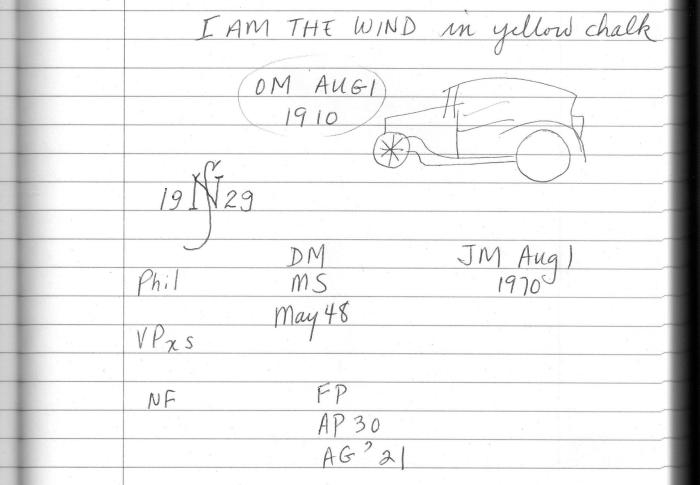 I AM THE WIND in yellow chalk
OM AUG 1
1910
19 N 29
DM
JM Aug 1
Phil
MS
1970
May 48
VPxs
NF
FP
AP 30
AG '21